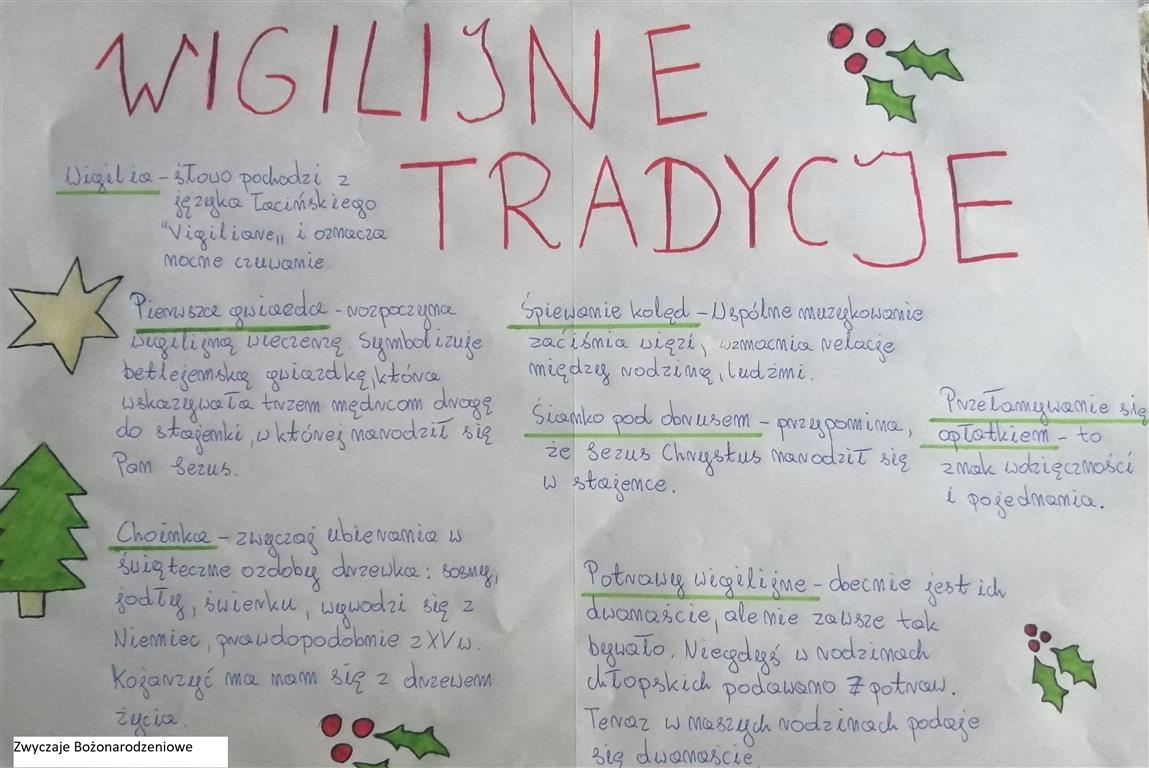 WIGILIJNE
TRADYCJE
Wigilia - słowo pochodzi z
języka łacińskiego
"Vigiliare„ i oznacza
nocne czuwanie.
Pierwsza gwiazda - rozpoczyna
wigilijną wieczerzę. Symbolizuje
betlejemską gwiazdkę, która
wskazywała trzem mędrcom drogę
do stajenki, w której narodził się
Pan Jezus.
Choinka - zwyczaj ubierania w
świąteczne ozdoby drzewka: sosny,
jodły, świerku, wywodzi się z
Niemiec, prawdopodobnie z XV w.
Kojarzyć ma nam się z drzewem
życia.
Śpiewanie kolęd - Wspólne muzykowanie
zaciśnia więzi, wzmacnia relacje
między rodziną, ludźmi.
Sianko pod obrusem - przypomina,
że Jezus Chrystus narodził się
w stajence.
Przełamywanie się
opłatkiem - to
znak wdzięczności
i pojednania.
Potrawy wigilijne - obecnie jest ich
dwanaście, ale nie zawsze tak
bywało. Niegdyś w rodzinach
chłopskich podawano 7 potraw.
Teraz w naszych rodzinach podaje
się dwanaście.
Zwyczaje Bożonarodzeniowe